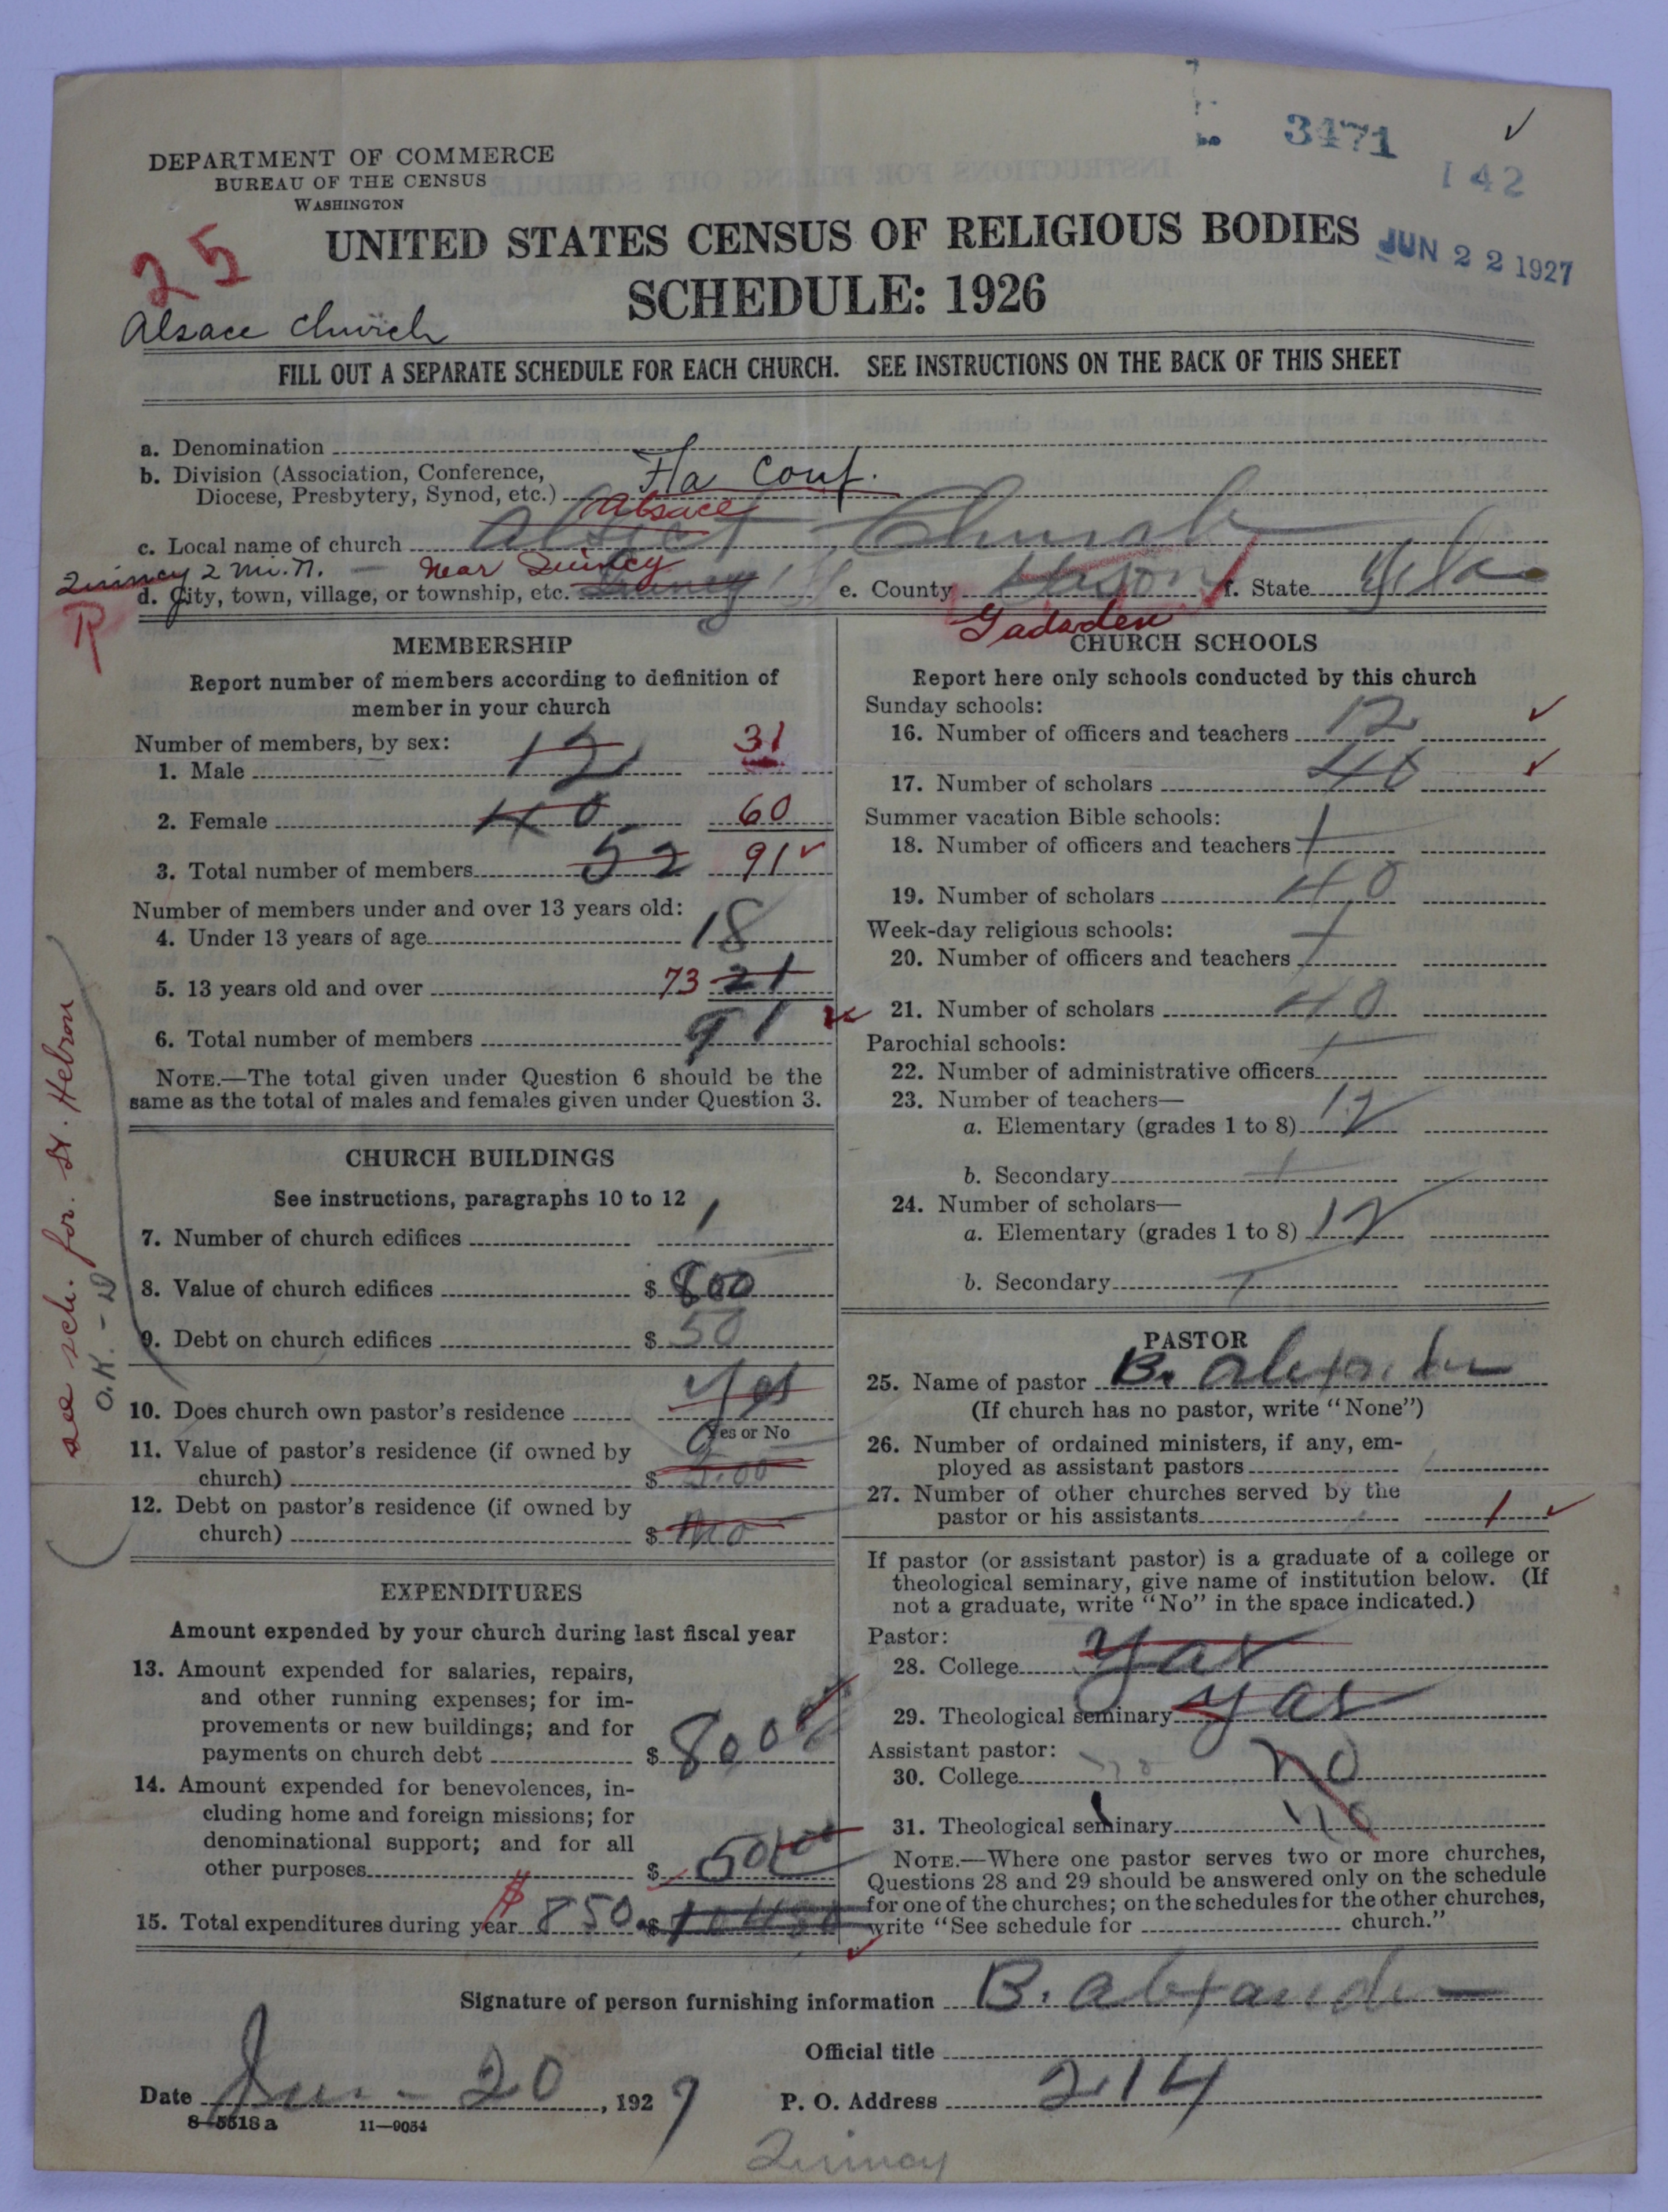 3471
142
DEPARTMENT OF COMMERCE
BUREAU OF THE CENSUS
WASHINGTON
25
UNITED STATES CENSUS OF RELIGIOUS BODIES
JUN 22 1927
SCHEDULE: 1926
Alsace Church
FILL OUT A SEPARATE SCHEDULE FOR EACH CHURCH. SEE INSTRUCTIONS ON THE BACK OF THIS SHEET
a. Denomination
b. Division (Association, Conference,
Diocese, Presbytery, Synod, etc.) Fla Conf.
Alsace
c. Local name of church Church
Quincy 2 mi. n. — near Quincy
d. City, town, village, or township, etc. e. County f. State Fla
R
Gadsden
MEMBERSHIP
Report number of members according to definition of
member in your church
Number of members, by sex:
1. Male 12 31
2. Female 40 60
3. Total number of members 52 91
Number of members under and over 13 years old:
4. Under 13 years of age 18
5. 13 years old and over 73 21
6. Total number of members 91
NOTE.—The total given under Question 6 should be the
same as the total of males and females given under Question 3.
see sch. for St. Hebron
O.K. - D
CHURCH BUILDINGS
See instructions, paragraphs 10 to 12
7. Number of church edifices 1
8. Value of church edifices $ 800
9. Debt on church edifices $ 50
10. Does church own pastor's residence yes
Yes or No
11. Value of pastor's residence (if owned by
church) $
12. Debt on pastor's residence (if owned by
church) $ no
EXPENDITURES
Amount expended by your church during last fiscal year
13. Amount expended for salaries, repairs,
and other running expenses; for im-
provements or new buildings; and for
payments on church debt $ 800
14. Amount expended for benevolences, in-
cluding home and foreign missions; for
denominational support; and for all
other purposes $ 50
15. Total expenditures during year $ 850 $
CHURCH SCHOOLS
Report here only schools conducted by this church
Sunday schools:
16. Number of officers and teachers 12
17. Number of scholars 40
Summer vacation Bible schools:
18. Number of officers and teachers
19. Number of scholars 40
Week-day religious schools:
20. Number of officers and teachers
21. Number of scholars 40
Parochial schools:
22. Number of administrative officers
23. Number of teachers—
a. Elementary (grades 1 to 8) 12
b. Secondary
24. Number of scholars—
a. Elementary (grades 1 to 8) 12
b. Secondary
PASTOR
25. Name of pastor B. Alexander
(If church has no pastor, write "None")
26. Number of ordained ministers, if any, em-
ployed as assistant pastors
27. Number of other churches served by the
pastor or his assistants 1
If pastor (or assistant pastor) is a graduate of a college or
theological seminary, give name of institution below. (If
not a graduate, write "No" in the space indicated.)
Pastor:
28. College yas
29. Theological seminary yas
Assistant pastor:
30. College no no
31. Theological seminary no
NOTE.—Where one pastor serves two or more churches,
Questions 28 and 29 should be answered only on the schedule
for one of the churches; on the schedules for the other churches,
write "See schedule for church."
Signature of person furnishing information B. Alexander
Official title
Date Jun - 20, 1927 P. O. Address 214
8-5518a 11—9034
Quincy